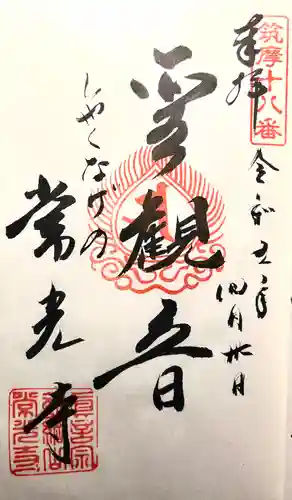 筑摩十八番
奉拝
令和五年四月廿日
聖観音
しやくなげの
常光寺